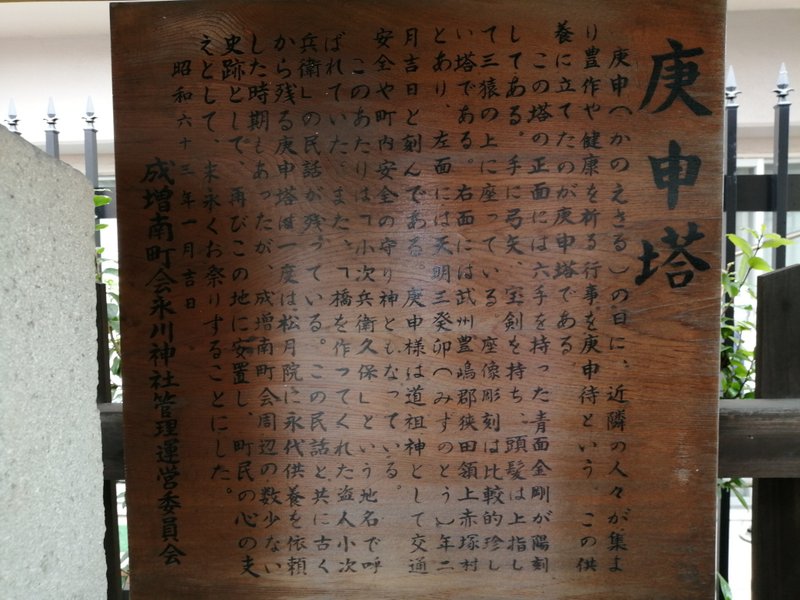 庚申塔
庚申(かのえさる)の日に、近隣の人々が集ま
り豊作や健康を祈る行事を庚申待という。この供
養に立てたのが庚申塔である。
この塔の正面には六手を持った青面金剛が陽刻
してある。手に弓矢、宝剣を持ち、頭髪は上指し
て三猿の上に座っている。座像彫刻は比較的珍し
い塔である。右面には武州豊嶋郡狭田領上赤塚村
とあり、左面には天明三癸卯(みずのとう)年二
月吉日と刻んである。庚申様は道祖神として交通
安全や町内安全の守り神ともなっている。
このあたりは「小次兵衛久保」という地名で呼
ばれていた。また、「橋を作ってくれた盗人小次
兵衛」の民話が残っている。この民話と共に古く
から残る庚申塔は一度は松月院に永代供養を依頼
した時期もあったが、成増南町会周辺の数少ない
史跡として、再びこの地に安置し、町民の心の支
えとして、末永くお祭りすることにした。
昭和六十三年一月吉日
成増南町会氷川神社管理運営委員会